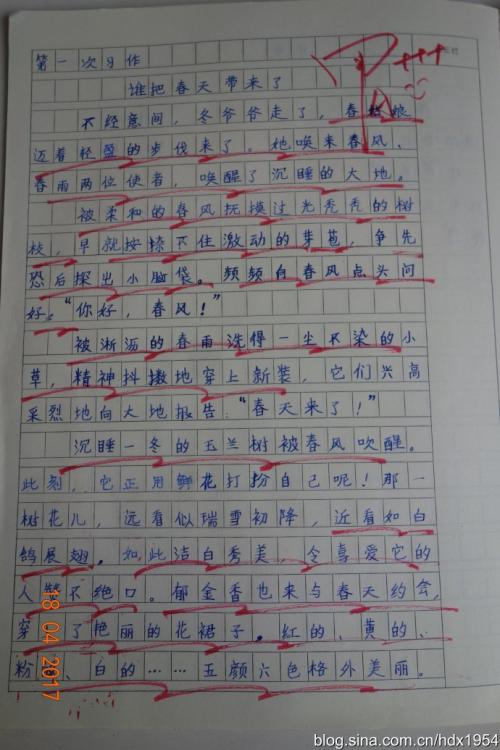 第一次习作
谁把春天带来了
不经意间，冬爷爷走了，春姑娘
迈着轻盈的步伐来了。她唤来春风、
春雨两位使者，唤醒了沉睡的大地。
被柔和的春风抚摸过光秃秃的树
枝，早就按捺不住激动的芽苞，争先
恐后探出小脑袋。频频向春风点头问
好。“你好，春风！”
被淅沥的春雨洗得一尘不染的小
草，精神抖擞地穿上新装，它们兴高
采烈地向大地报告：“春天来了！”
沉睡一冬的玉兰树被春风吹醒。
此刻，它正用鲜花打扮自己呢！那一
树花儿，远看似瑞雪初降，近看如白
鸽展翅。如此洁白秀美，令喜爱它的
人赞不绝口。郁金香也来与春天约会，
穿了艳丽的花裙子。红的、黄的、
粉、白的……五颜六色格外美丽。
18 04 2017
blog.sina.com.cn/hdx1954